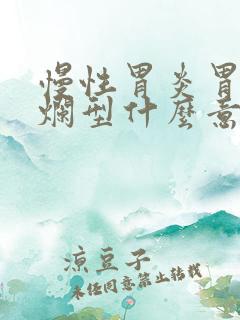 慢性胃炎胃
烂型什麼意
凉豆子
未经同意禁止转载